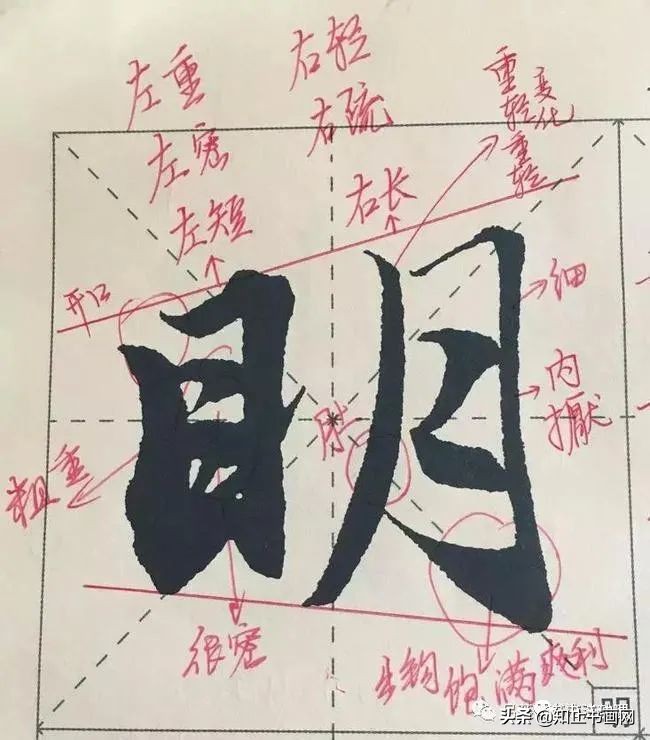 左重
右轻
重轻变化
重轻
左密
右疏
左短
右长
开口
眀
细
内擫
粗重
很密
出钩饱满爽利
头条 @知正书画网